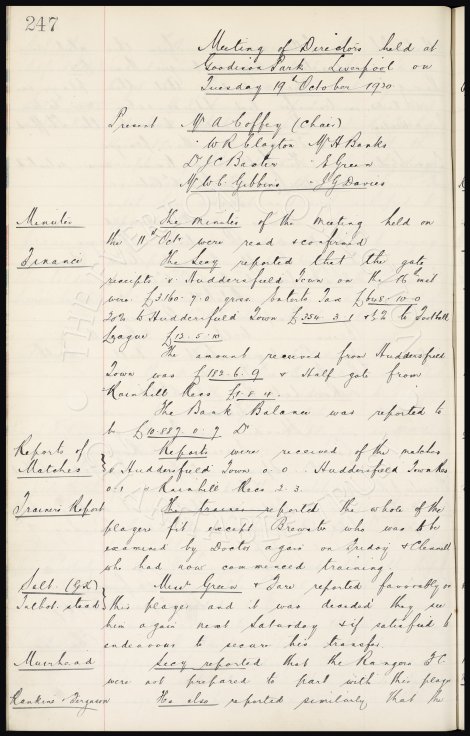 247
Meeting of Directors held at
Goodison Park Liverpool on
Tuesday 19th October 1920
Present Mr A Coffey (Chair)
" W R Clayton Mr H Banks
Dr J C Baxter " E Green
Mr W C Gibbins " J G Davies
Minutes The minutes of the meeting held on
the 11th Oct. were read & confirmed
Finance The Secy reported that the gate
receipts v Huddersfield Town on the 16th inst
were £3160.9.0 gross. Enterts Tax £648.10.0
20% to Huddersfield Town £354.3.1 & ½% to Football
League £13.5.10
The amount received from Huddersfield
Town was £182.6.9 & Half gate from
Rainhill Recs £1.8.4.
The Bank Balance was reported to
be £10,887.0.7 Dr
Reports of Matches Reports were received of the matches
v Huddersfield Town 0.0. Huddersfield Town Res
0.1 v Rainhill Recs 2.3.
Trainers Report The trainer reported the whole of the
players fit except Brewster who was to be
examined by Doctor again on Friday &
who had now commenced training.
Salt. (Gd) Messrs Green & Fare reported favorably on
Talbot. Stead this player and it was decided they see
him again next Saturday & if satisfied to
endeavour to secure his transfer.
Muirhead Secy reported that the Rangers F.C.
were not prepared to part with this player
Rankine & Ferguson He also reported similarly that the